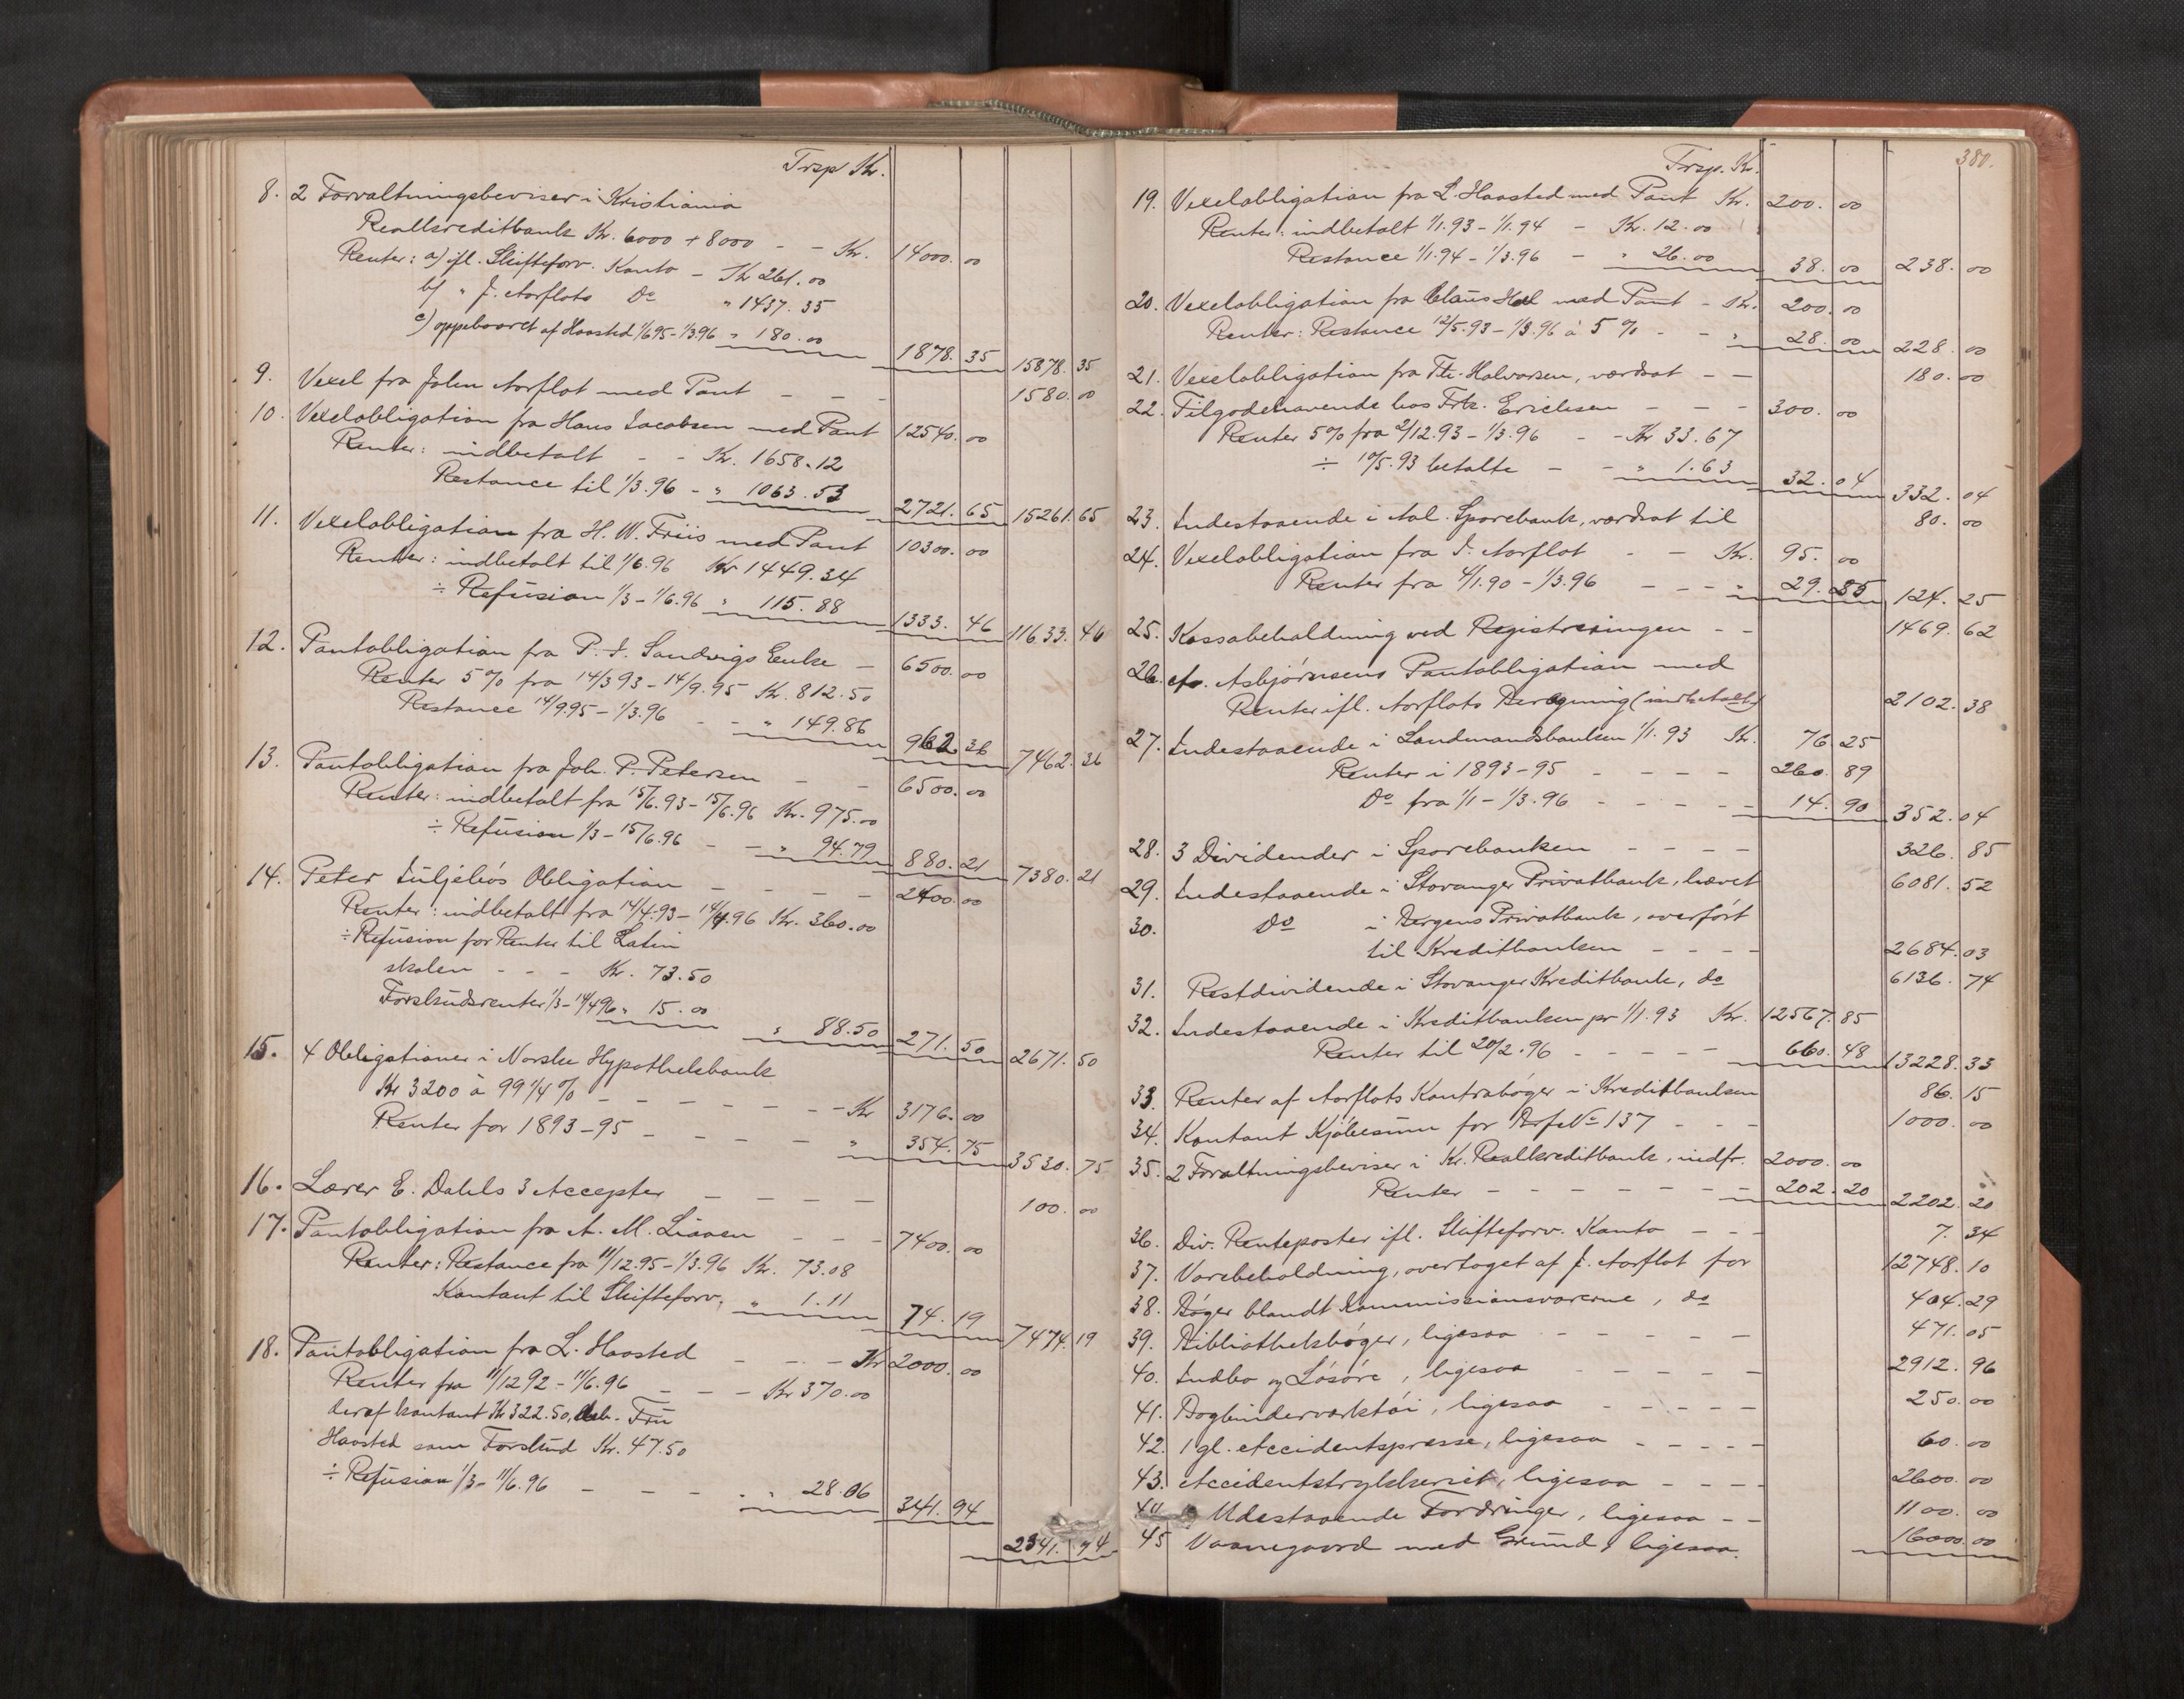 Trsp Kr.
8. 2 Forvaltningsbeviser i Kristiania
Reallkreditbank Kr. 6000 + 8000 - - Kr. 14000.00
Renter: a) ifl. Skifteforv. Konto - Kr 261.00
b) " J. Aarflots Do " 1437.35
c) oppebaaret af Haasted 1/6 95 - 1/3.96 " 180.00 1878.35 15878.35
9. Vexel fra John Aarflot med Pant - - - 1580.00
10. Vexelobligation fra Hans Jacobsen med Pant 12540.00
Renter: indbetalt - - Kr. 1658.12
Restance til 1/3.96 - " 1063.53 2721.65 15261.65
11. Vexelobligation fra H. W. Friis med Pant 10300.00
Renter: indbetalt til 1/6.96 Kr 1449.34
÷ Refusion 1/3 - 1/6.96 " 115.88 1333.46 11633.46
12. Pantobligation fra P. J. Sandvigs Enke - 6500.00
Renter 5% fra 14/3 93 - 14/9.95 Kr. 812.50
Restance 14/9.95 - 1/3.96 - - " 149.86 962.36 7462.36
13. Pantobligation fra Joh. P. Petersen - - 6500.00
Renter: indbetalt fra 15/6.93 - 15/6.96 Kr. 975.00
÷ Refusion 1/3 - 15/6.96 - - " 94.79 880.21 7380.21
14. Peter Juljebös Obligation - - - - 2400.00
Renter: indbetalt fra 14/4.93 - 14/4.96 Kr. 360.00
÷ Refusion for Renter til Latin
skolen - - - Kr. 73.50
Forskudsrenter 1/3 - 14/4 96 " 15.00
" 88.50 271.50 2671.50
15. 4 Obligationer i Norske Hypothekbank
Kr 3200 à 99 1/4 % - - - - - - Kr 3176.00
Renter for 1893-95 - - - - - " 354.75 3530.75
16. Lærer E. Dahls 3 Accepter - - - - 100.00
17. Pantobligation fra A. M. Liaaen - - - 7400.00
Renter: Restance fra 11/12.95 - 1/3.96 Kr. 73.08
Kontant til Skifteforv. " 1.11 74.19 7474.19
18. Pantobligation fra L. Haasted - - - Kr 2000.00
Renter fra 11/12 92 - 11/6.96 - - - Kr 370.00
deraf kontant Kr 322.50, deb. Fru
Haasted som Forskud Kr. 47.50
÷ Refusion 1/3 - 11/6.96 - - - " " 28.06 341.94
2341.94
380.
Trsp. Kr.
19. Vexelobligation fra L. Haasted med Pant Kr. 200.00
Renter: indbetalt 1/1.93 - 1/1.94 - Kr. 12.00
Restance 1/1.94 - 1/3.96 - " 26.00 38.00 238.00
20. Vexelobligation fra Claus Hall med Pant - Kr. 200.00
Renter: Restance 12/5.93 - 1/3.96 à 5% - - " 28.00 228.00
21. Vexelobligation fra Th. Halvorsen, værdsat - - 180.00
22. Tilgodehavende hos Frk. Erichsen - - - 300.00
Renter 5% fra 2/12.93 - 1/3.96 - - Kr 33.67
÷ 10/5.93 betalte - - " 1.63 32.04 332.04
23. Indestaaende i Aal. Sparebank, værdsat til 80.00
24. Vexelobligation fra J. Aarflot - - Kr. 95.00
Renter fra 4/1.90 - 1/3.96 - - - " 29.25 124.25
25. Kassabeholdning ved Registreringen - - 1469.62
26. A. Asbjørnsens Pantobligation med
Renter ifl. Aarflots Beregning (indbetalt) 2102.38
27. Indestaaende i Landmandsbanken 1/1.93 Kr. 76.25
Renter i 1893-95 - - - - 260.89
Do fra 1/1 - 1/3.96 - - - - 14.90 352.04
28. 3 Dividender i Sparebanken - - - - 326.85
29. Indestaaende i Stavanger Privatbank, hævet 6081.52
30. Do i Bergens Privatbank, overført
til Kreditbanken - - - - 2684.03
31. Restdividende i Stavanger Kreditbank, do 6136.74
32. Indestaaende i Kreditbanken pr 1/1.93 Kr. 12567.85
Renter til 20/2.96 - - - - - 660.48 13228.33
33. Renter af Aarflots Kontrabøger i Kreditbanken 86.15
34. Kontant Kjøbesum for Brf No 137 - - - 1000.00
35. 2 Forvaltningsbeviser i Kr. Reallkreditbank, indfr. 2000.00
Renter - - - - - - - 202.20 2202.20
36. Div. Renteposter ifl. Skifteforv. Konto - - - 7.34
37. Varebeholdning, overtaget af J. Aarflot for 12748.10
38. Bøger blandt Kommissionsvarerne, do 404.29
39. Bibliothekbøger, ligesaa - - - - - 471.05
40. Indbo og Løsøre, ligesaa - - - - 2912.96
41. Bogbinderværktøi, ligesaa - - - - - 250.00
42. 1 gl. Accidentspresse, ligesaa - - - - - 60.00
43. Accidentstrykkeriet, ligesaa - - - - 2600.00
44. Udestaaende Fordringer, ligesaa - - 1100.00
45 Vaanegaard med Grund, ligesaa. 16000.00